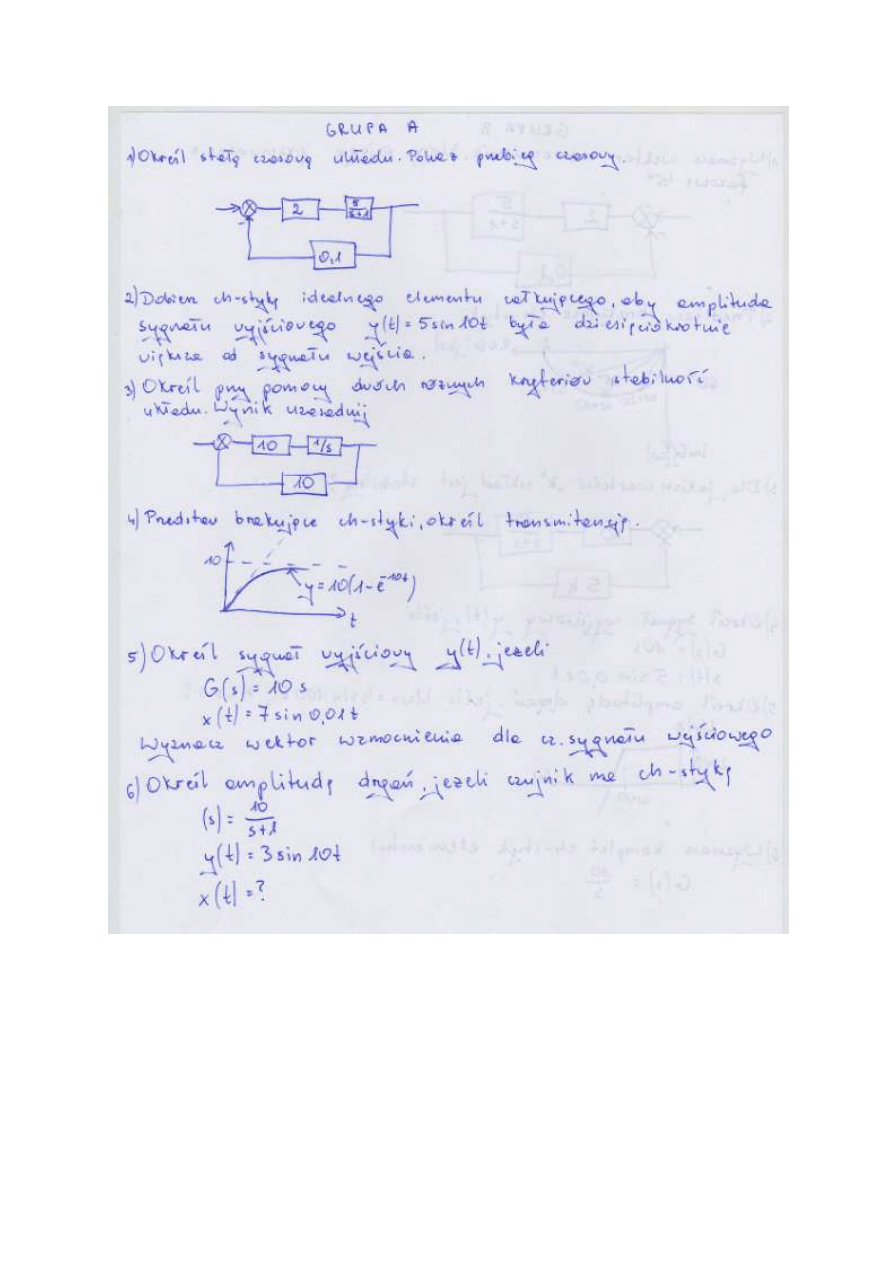 GRUPA A
1) Określ stałą czasową układu. Pokaż przebieg czasowy.
2
5
s+1
-
0,1
2) Dobierz ch-stykę idealnego elementu całkującego, aby amplituda
sygnału wyjściowego y(t) = 5 sin 10t była dziesięciokrotnie
większa od sygnału wejścia.
3) Określ przy pomocy dwóch różnych kryteriów stabilność
układu. Wynik uzasadnij
10
1/s
-
10
4) Przedstaw brakujące ch-styki, określ transmitancję.
10
y = 10(1-e^-10t)
t
5) Określ sygnał wyjściowy y(t), jeżeli
G(s) = 10 s
x(t) = 7 sin 0,01t
Wyznacz wektor wzmocnienia dla cz. sygnału wejściowego
6) Określ amplitudę drgań, jeżeli czujnik ma ch-stykę
(s) = 10
s+1
y(t) = 3 sin 10t
x(t) = ?